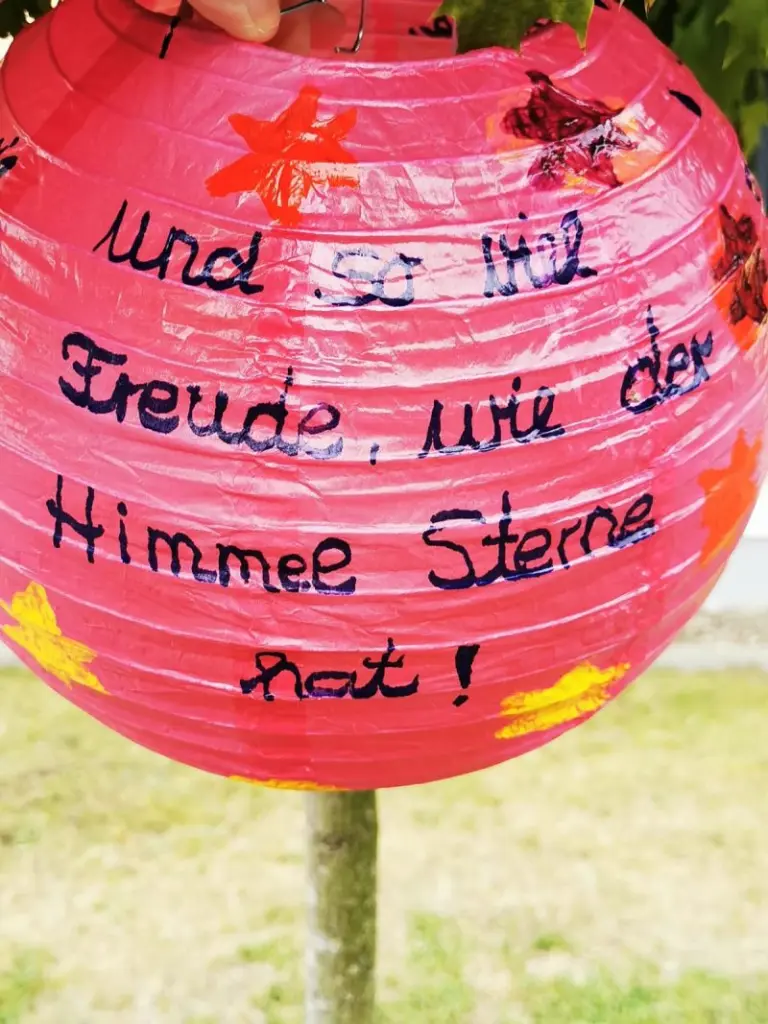 und so viel
Freude, wie der
Himmel Sterne
hat!